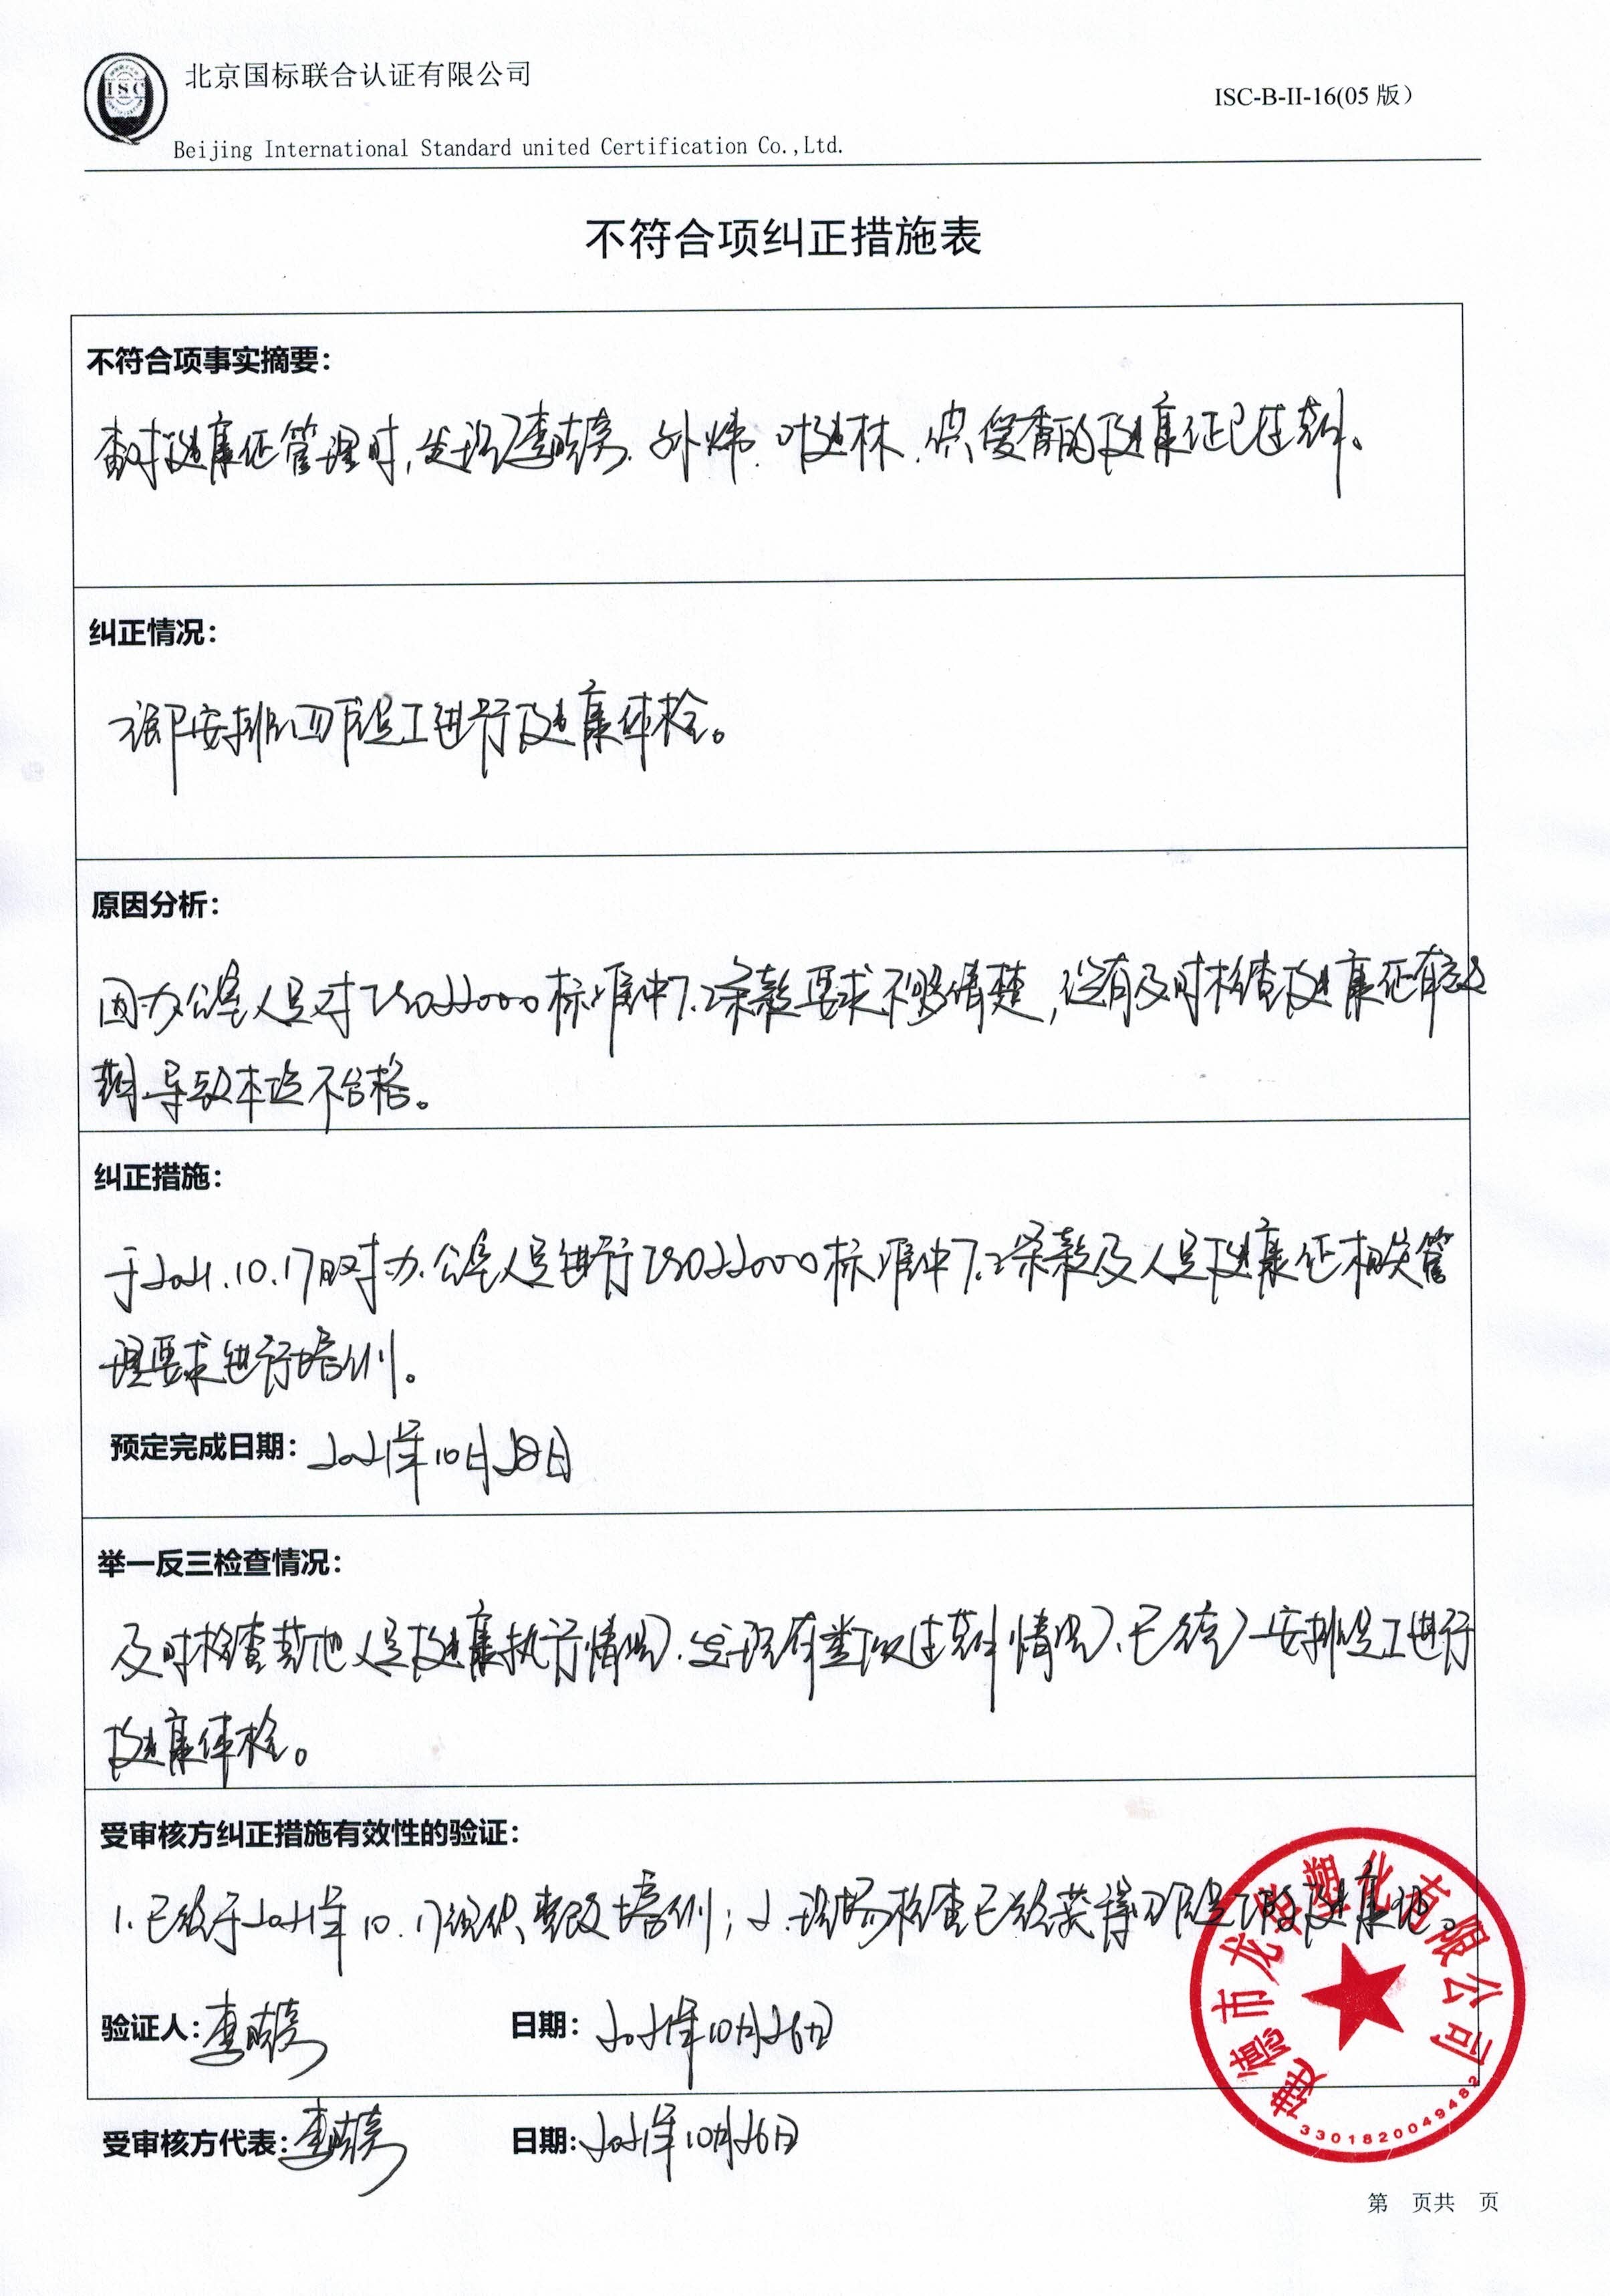 北京国标联合认证有限公司
ISC-B-II-16(05 版）
Beijing International Standard united Certification Co.,Ltd.
不符合项纠正措施表
不符合项事实摘要：
查对健康证管理时，发现李晓亮、孙炜、叶建林、洪爱香的健康证已过期。
纠正情况：
立即安排四个员工进行健康体检。
原因分析：
因办公室人员对ISO22000标准中7.2条款要求不够清楚，没有及时检查健康证有效
期导致本次不合格。
纠正措施：
于2021.10.17日对办公室人员进行ISO22000标准中7.2条款及人员健康证相关管
理要求进行培训。
预定完成日期：2021年10月28日
举一反三检查情况：
及时检查其他人员健康执行情况，发现有类似过期情况，已经安排员工进行
健康体检。
受审核方纠正措施有效性的验证：
1.已经于2021年10.17提供培训；2.现场检查已经获得员工的健康证。
验证人： 日期：2021年10月26日
受审核方代表： 日期：2021年10月26日
建德市龙塑化有限公司
3301820049482
第 页共 页